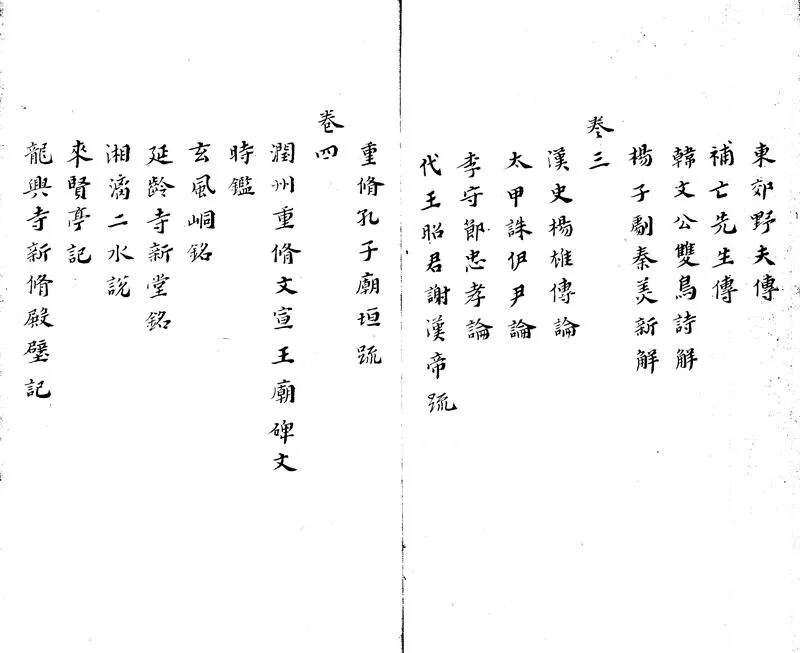 東郊野夫傳
補亡先生傳
韓文公雙鳥詩解
楊子劇秦美新解
卷三
漢史楊雄傳論
太甲誅伊尹論
李守節忠孝論
代王昭君謝漢帝疏
重脩孔子廟垣疏
卷四
潤州重脩文宣王廟碑文
時鑑
玄風峒銘
延齡寺新堂銘
湘漓二水說
來賢亭記
龍興寺新脩殿壁記